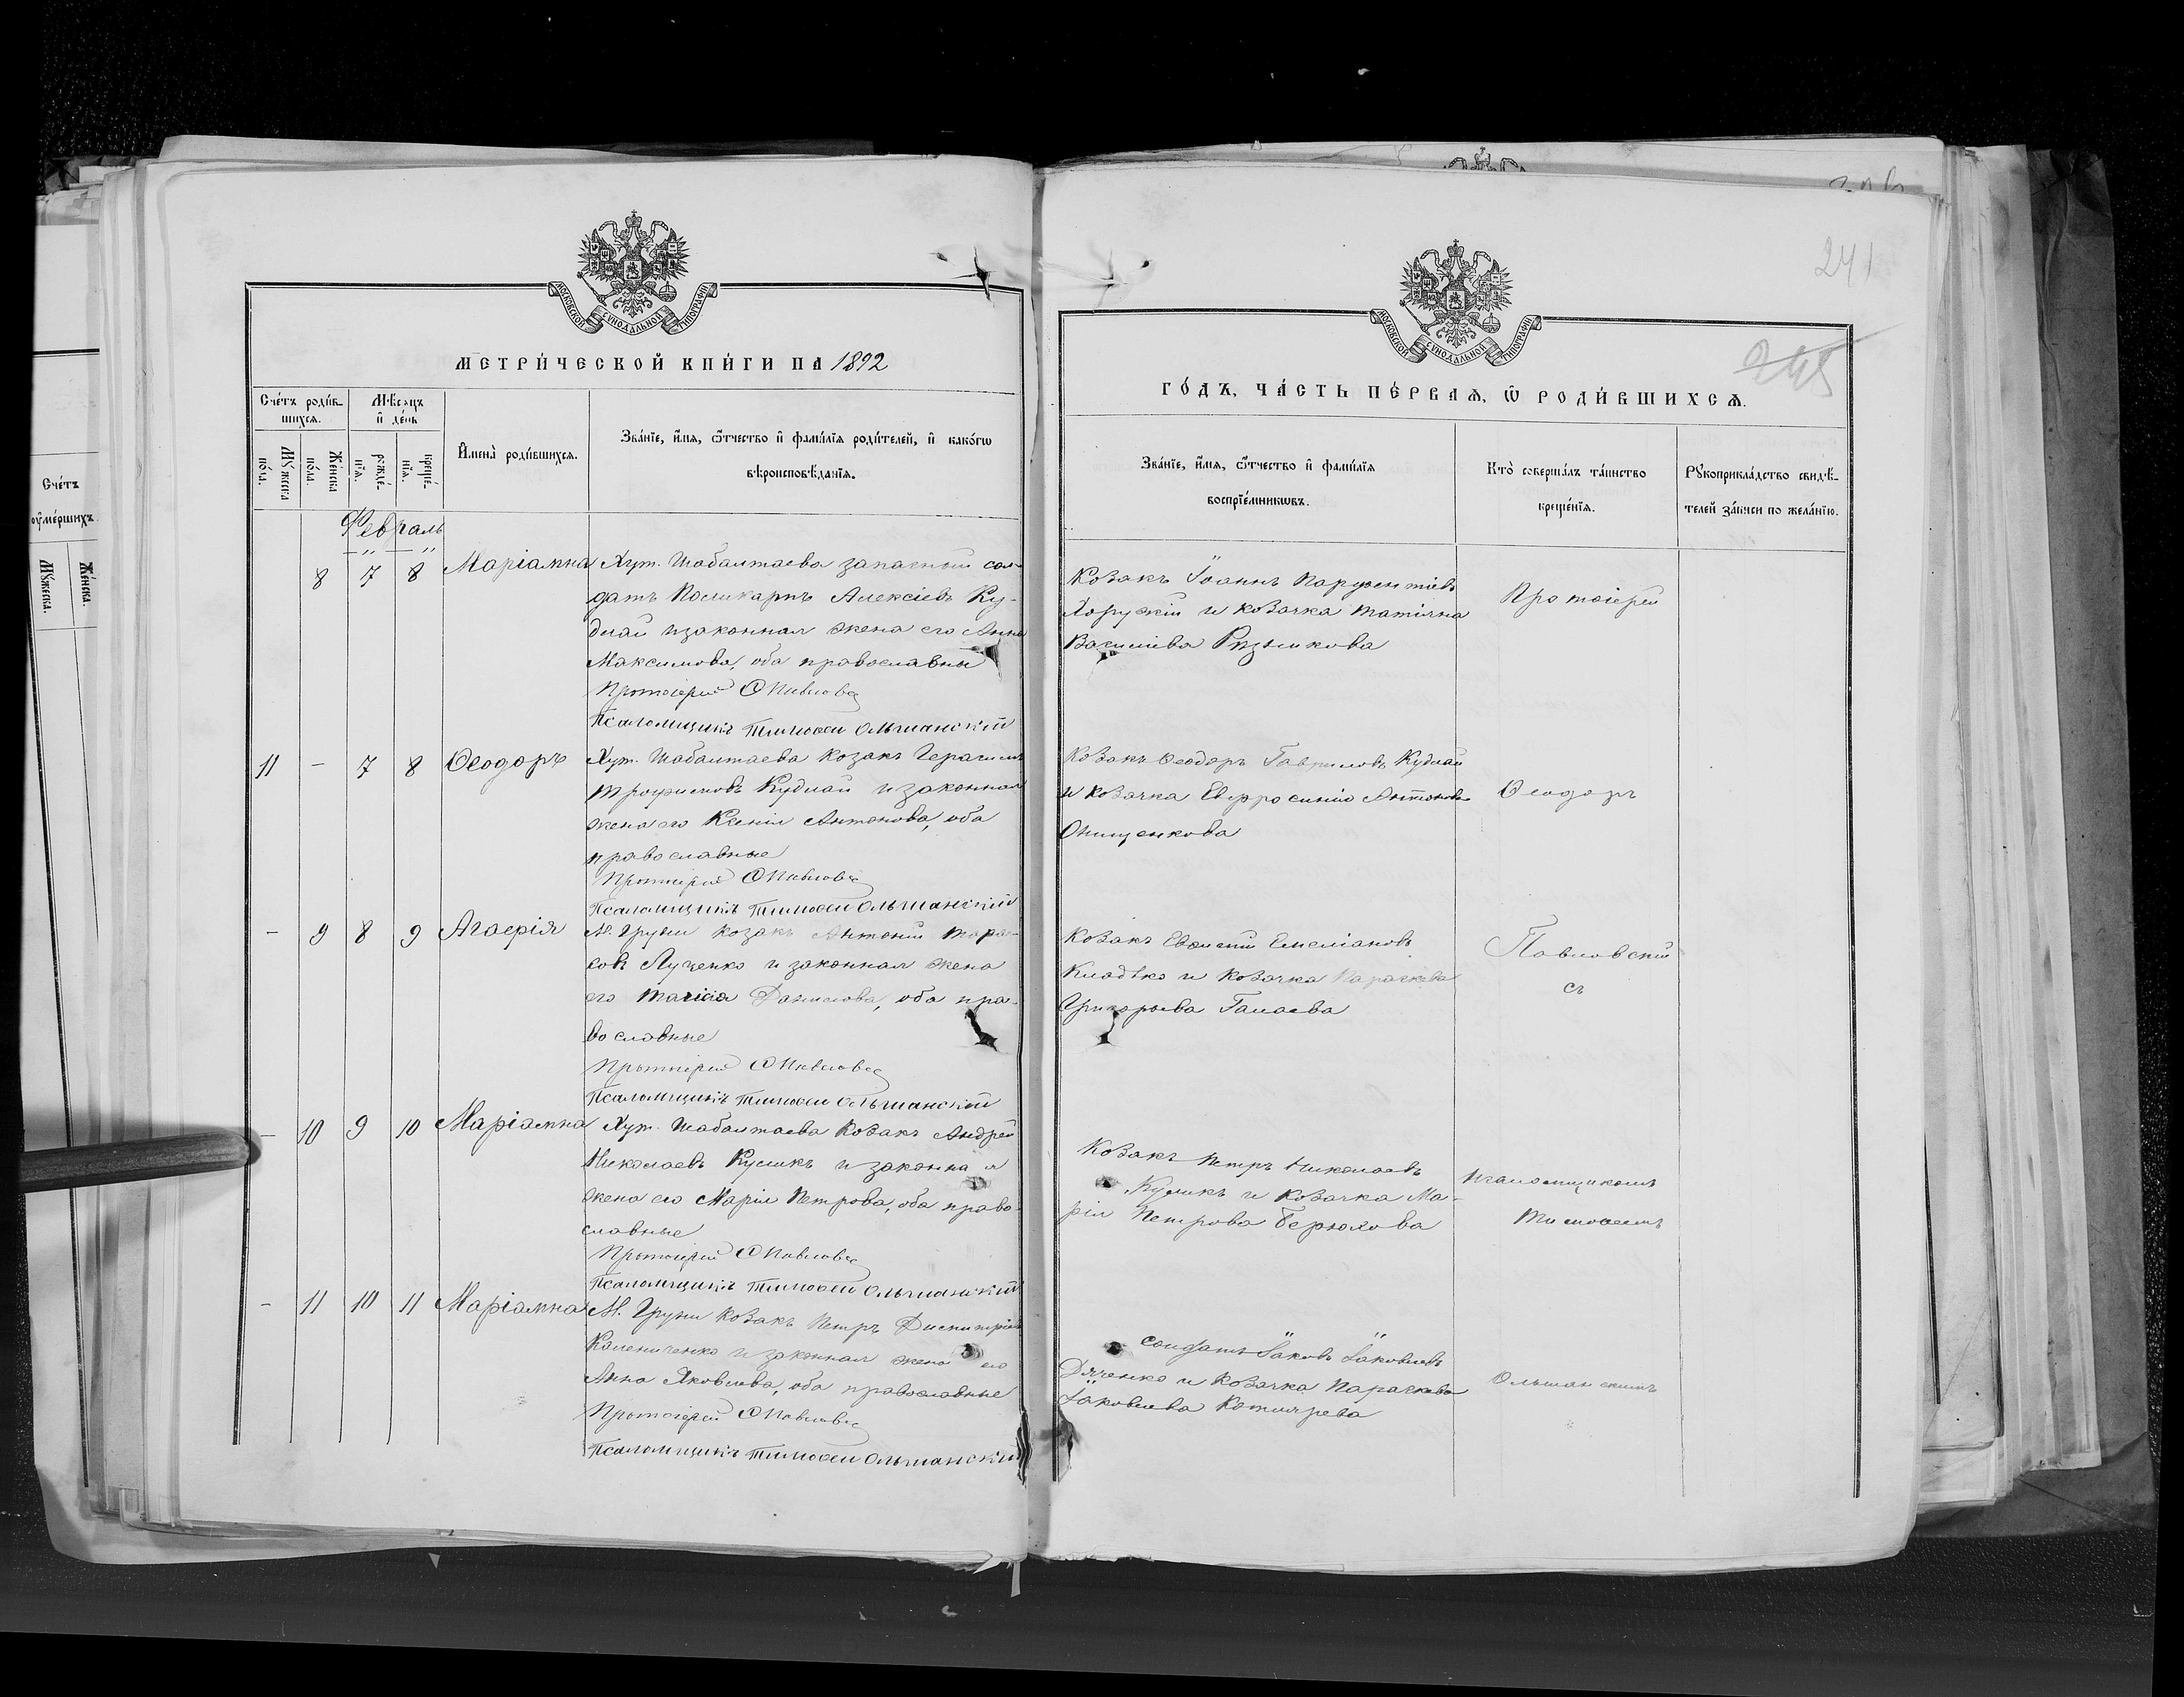 МОСКОВСКОЙ СѴНОДАЛЬНОЙ ТИПОГРАФІИ
МЕТРИ́ЧЕСКОЙ КНИ́ГИ НА 1892
Сче́тъ роди́в-
шихсѧ.
Мѣ́сѧцъ
и҆ де́нь
Мꙋ́жеска
по́ла.
Же́нска
по́ла.
рожде́-
нїѧ.
креще́-
нїѧ.
И҆мена̀ роди́вшихсѧ.
Зва́нїе, и҆́мѧ, ѻ҆́тчество и҆ фамі́лїѧ роди́телей, и҆ како́гѡ
вѣроисповѣ́данїѧ.
Февраль
8 7 8 Маріамна Хут. Шабалтаева запасный сол-
датъ Поликарпъ Алексіевъ Ку-
длай и законная жена его Анна
Максимова, оба православны
Протоіерей Ѳ Павловс
Псаломщикъ Тимоѳей Ольшанскій
11 - 7 8 Ѳеодоръ Хут. Шабалтаева козакъ Герасимъ
Трофимовъ Кудлай и законная
жена его Ксенія Антонова, оба
православные
Протоіерей Ѳ Павловс
Псаломщикъ Тимоѳей Ольшанскій
- 9 8 9 Агафія М. Груни козакъ Антоній Тара-
совъ Луценко и законная жена
его Таисія Данилова, оба пра-
вославные
Протоіерей Ѳ Павловс
Псаломщикъ Тимоѳей Ольшанскій
- 10 9 10 Маріамна Хут. Шабалтаева козакъ Андрей
Николаевъ Куликъ и законная
жена его Марія Петрова, оба право-
славные
Протоіерей Ѳ Павловс
Псаломщикъ Тимоѳей Ольшанскій
- 11 10 11 Маріамна М. Груни козакъ Петръ Димитріев
Калениченко и законная жена его
Анна Яковлева, оба православные
Протоіерей Ѳ Павловс
Псаломщикъ Тимоѳей Ольшанскій
241
245
МОСКОВСКОЙ СѴНОДАЛЬНОЙ ТИПОГРАФІИ
ГО́ДЪ, ЧА́СТЬ ПЕ́РВАѦ, Ѡ҆ РОДИ́ВШИХСѦ.
Зва́нїе, и҆́мѧ, ѻ҆́тчество и҆ фамі́лїѧ
воспрїе́мникѡвъ.
Кто̀ соверша́лъ та́инство
креще́нїѧ.
Рꙋкоприкла́дство свидѣ́-
телей за́писи по жела́нїю.
Козакъ Іоаннъ Парфентіевъ
Хоружій и козачка Татіана
Василіева Ризникова
Протоіерей
Козакъ Ѳеодоръ Гавриловъ Кудлай
и козачка Евфросинія Антонова
Онищенкова
Ѳеодоръ
Козакъ Евѳимій Емеліановъ
Кладько и козачка Параскева
Григорьева Галаева
Павловскій
съ
Козакъ Петръ Николаевъ
Куликъ и козачка Ма-
рія Петрова Берюхова
псаломщикомъ
Тимоѳеемъ
солдатъ Іаковъ Іаковлевъ
Дяченко и козачка Параскева
Іаковлева Котлярева
Ольшанскимъ
Сче́тъ
ᲂу҆ме́ршихъ
Мꙋ́жеска.
Же́нска.